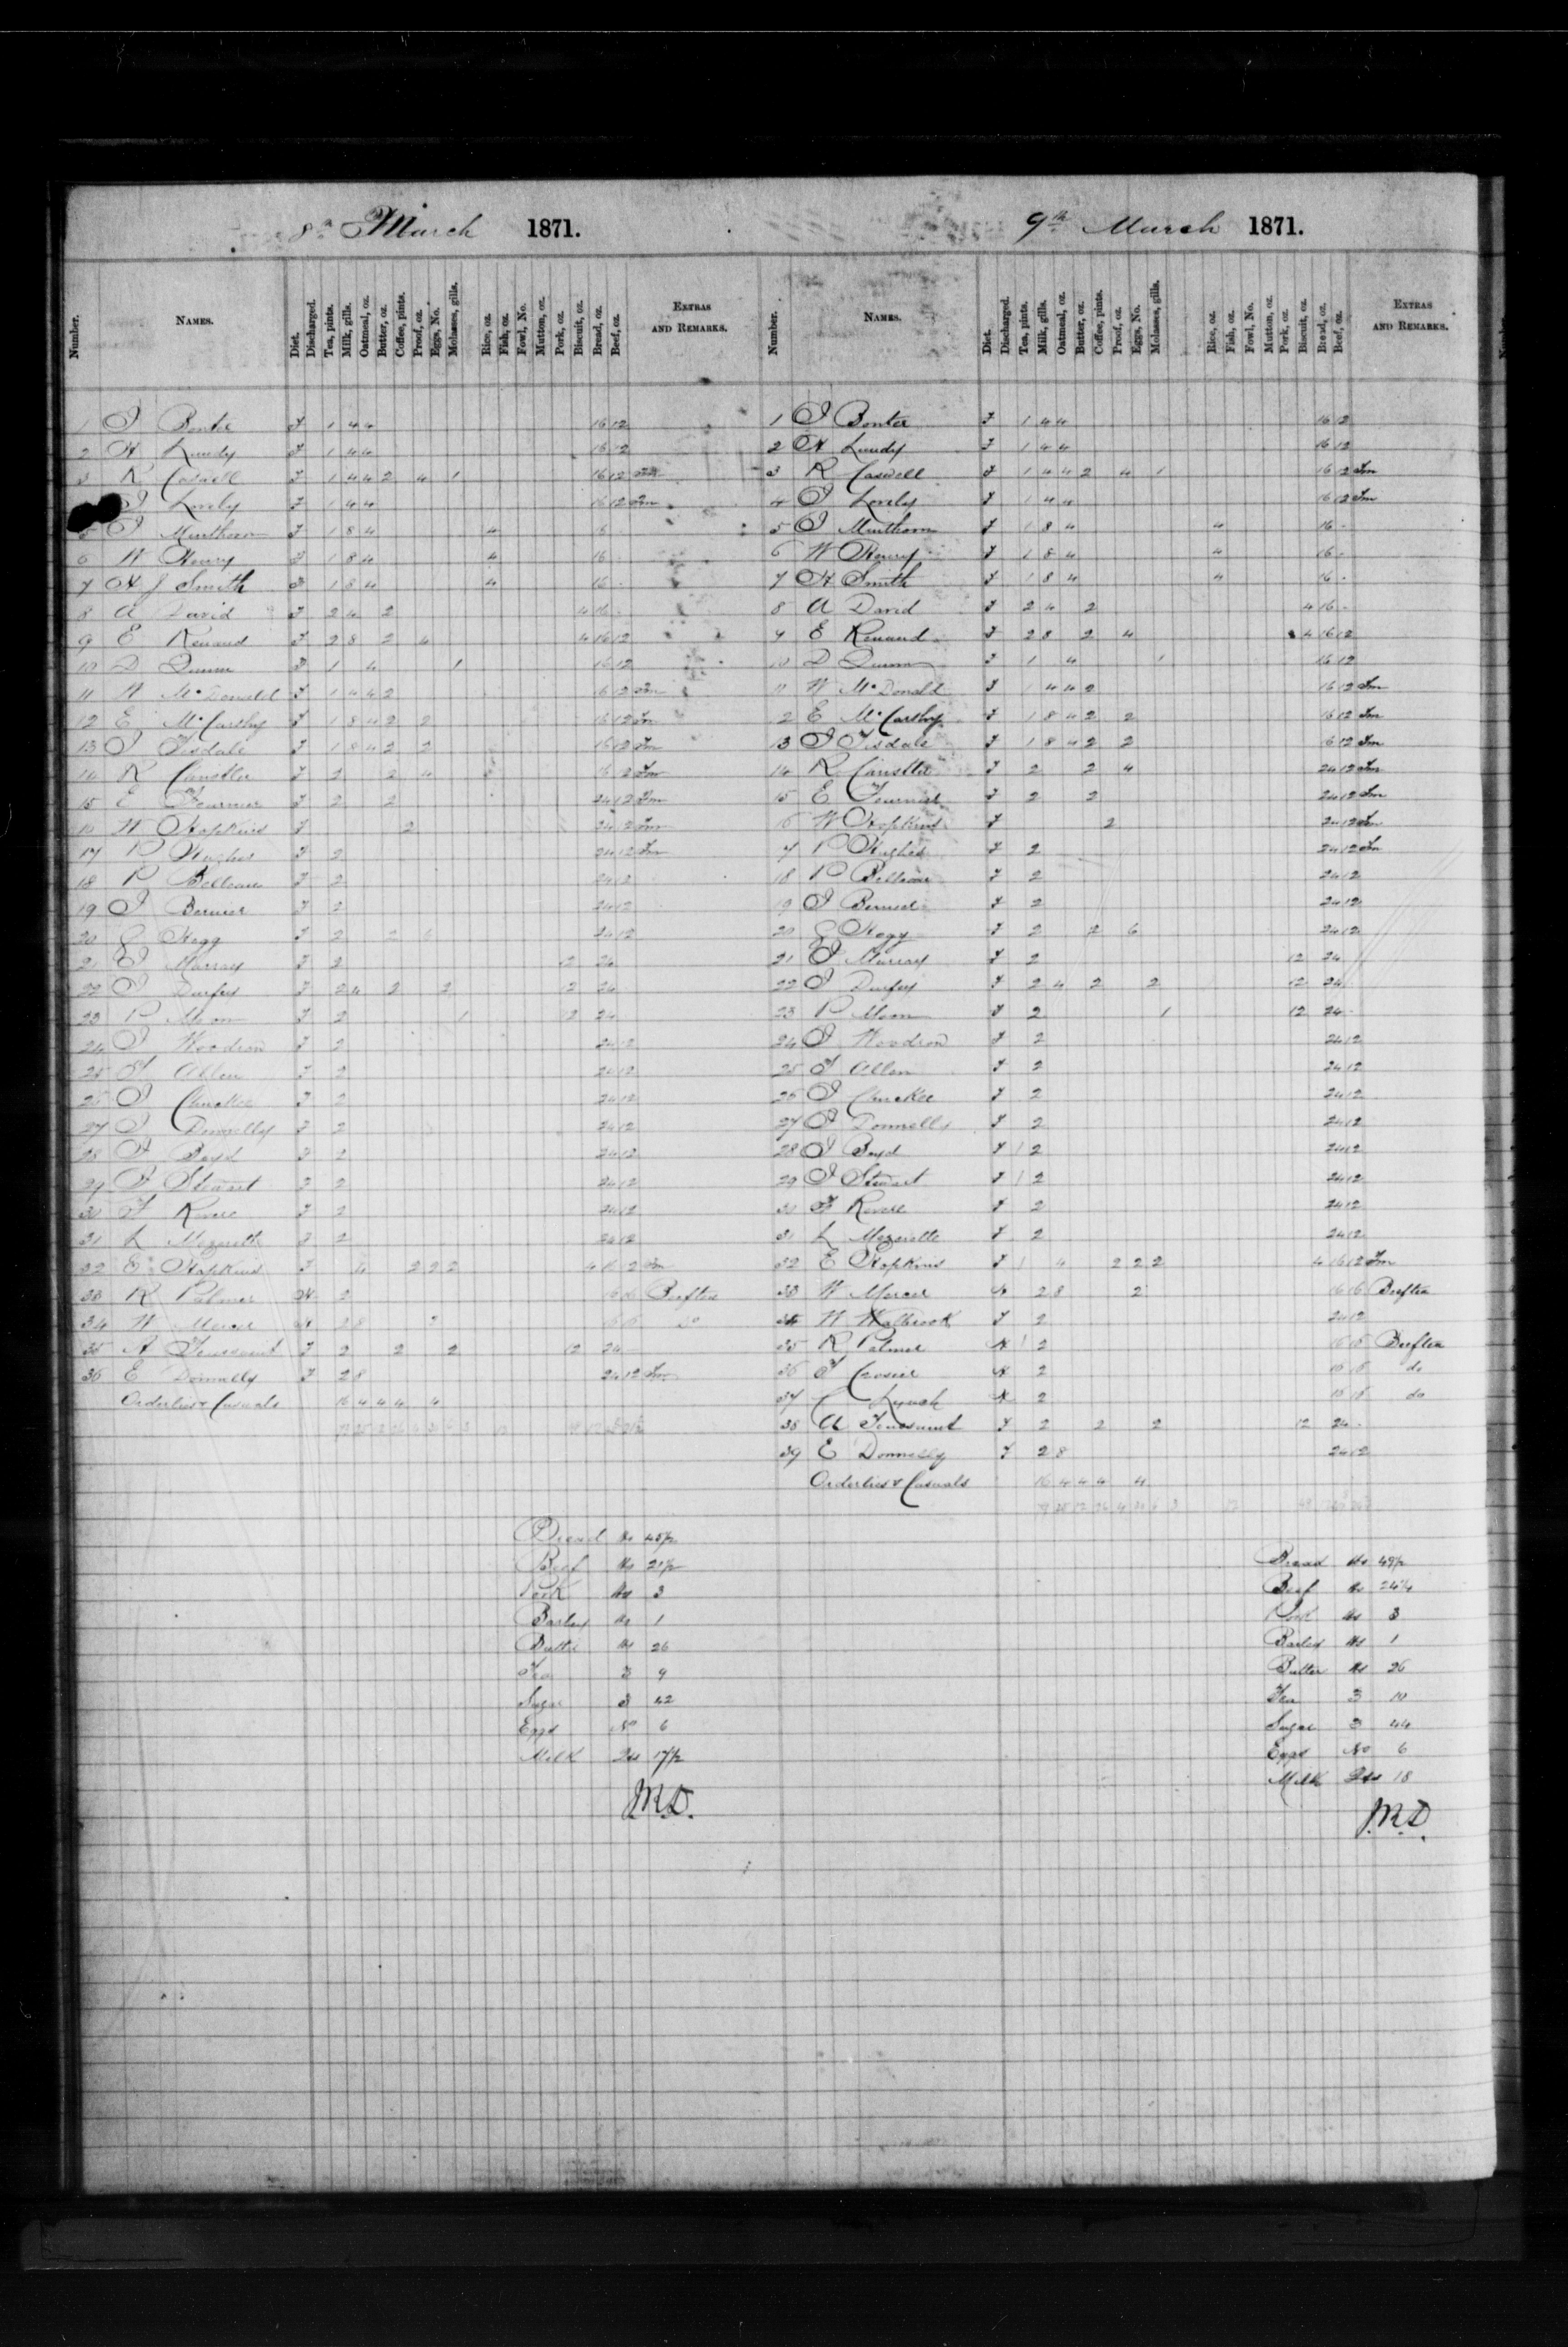 8th March 1871.
Number. NAMES. Diet. Discharged. Tea, pints. Milk, gills. Oatmeal, oz. Butter, oz. Coffee, pints. Proof, oz. Eggs, No. Molasses, gills. Rice, oz. Fish, oz. Fowl, No. Mutton, oz. Pork, oz. Biscuit, oz. Bread, oz. Beef, oz. EXTRAS AND REMARKS.
1 J Bonter F 1 4 4 16 12
2 H Lundy F 1 4 4 16 12
3 R Caswell F 1 4 4 2 4 1 16 12
J Lovely F 1 4 4 16 12 Im
5 J Minthorn F 1 8 4 4 16
6 W Henry F 1 8 4 4 16
7 H J Smith F 1 8 4 4 16
8 A David F 2 4 2 4 16
9 E Renaud F 2 8 2 4 4 16 12
10 D Quinn F 1 4 1 16 12
11 W McDonald F 1 4 4 2 16 12 Im
12 E McCarthy F 1 8 4 2 2 16 12 Im
13 J Tisdale F 1 8 4 2 2 16 12 Im
14 R Canstler F 2 2 4 16 12 Im
15 E Fournier F 2 2 24 12 Im
16 W Hopkins F 2 24 12 Im
17 P Hughes F 2 24 12 Im
18 P Belleau F 2 24 12
19 J Bernier F 2 24 12
20 Hegg F 2 2 6 24 12
21 J Murray F 2 12 24
22 J Durfey F 2 4 2 2 12 24
23 P Moon F 2 1 12 24
24 J Woodrow F 2 24 12
25 J Allen F 2 24 12
26 J Churkee F 2 24 12
27 J Donnelly F 2 24 12
28 J Boyd F 2 24 12
29 J Stewart F 2 24 12
30 F 2 24 12
31 L Mezerette F 2 24 12
32 E Hopkins F 4 2 2 2 4 16 12 Im
33 R Palmer H 2 16 16 Beeftea
34 W Mercer H 2 8 2 16 16 do
35 A Toussaint F 2 2 2 12 24
36 E Donnelly F 2 8 24 12 Im
Orderlies & Casuals 16 4 4 4 4
Bread lbs 45½
Beef lbs 21½
Pork lbs 3
Barley lbs 1
Butter 26
Tea 3 9
Sugar 3 42
Eggs No 6
Milk 17½
M.D.
9th March 1871.
Number. NAMES. Diet. Discharged. Tea, pints. Milk, gills. Oatmeal, oz. Butter, oz. Coffee, pints. Proof, oz. Eggs, No. Molasses, gills. Rice, oz. Fish, oz. Fowl, No. Mutton, oz. Pork, oz. Biscuit, oz. Bread, oz. Beef, oz. EXTRAS AND REMARKS.
1 J Bonter F 1 4 4 16 12
2 H Lundy F 1 4 4 16 12
3 R Caswell F 1 4 4 2 4 1 16 12 Im
4 J Lovely F 1 4 4 16 12 Im
5 J Minthorn F 1 8 4 4 16
6 W Henry F 1 8 4 4 16
7 H Smith F 1 8 4 4 16
8 A David F 2 4 2 4 16
9 E Renaud F 2 8 2 4 4 16 12
10 D Quinn F 1 4 1 16 12
11 W McDonald F 1 4 4 2 16 12 Im
12 E McCarthy F 1 8 4 2 2 16 12 Im
13 J Tisdale F 1 8 4 2 2 16 12 Im
14 R Canstler F 2 2 4 24 12 Im
15 E Fournier F 2 2 24 12 Im
16 W Hopkins F 2 24 12 Im
17 P Hughes F 2 24 12 Im
18 P Belleau F 2 24 12
19 J Bernier F 2 24 12
20 Hegg F 2 2 6 24 12
21 J Murray F 2 12 24
22 J Durfey F 2 4 2 2 12 24
23 P Moon F 2 1 12 24
24 J Woodrow F 2 24 12
25 J Allen F 2 24 12
26 J Churkee F 2 24 12
27 J Donnelly F 2 24 12
28 J Boyd F 2 24 12
29 J Stewart F 2 24 12
30 F 2 24 12
31 L Mezerette F 2 24 12
32 E Hopkins F 4 2 2 2 4 16 12 Im
33 W Mercer H 2 8 2 16 16 Beeftea
34 W Walbrook F 2 24 12
35 R Palmer H 2 16 16 Beeftea
36 J Crosier H 2 16 16 do
37 Lynch H 2 16 16 do
38 A Toussaint F 2 2 2 12 24
39 E Donnelly F 2 8 24 12
Orderlies & Casuals 16 4 4 4 4
Bread lbs 49½
Beef lbs 24¼
Pork lbs 3
Barley lbs 1
Butter 26
Tea 3 10
Sugar 3 44
Eggs No 6
Milk 18
M.D.